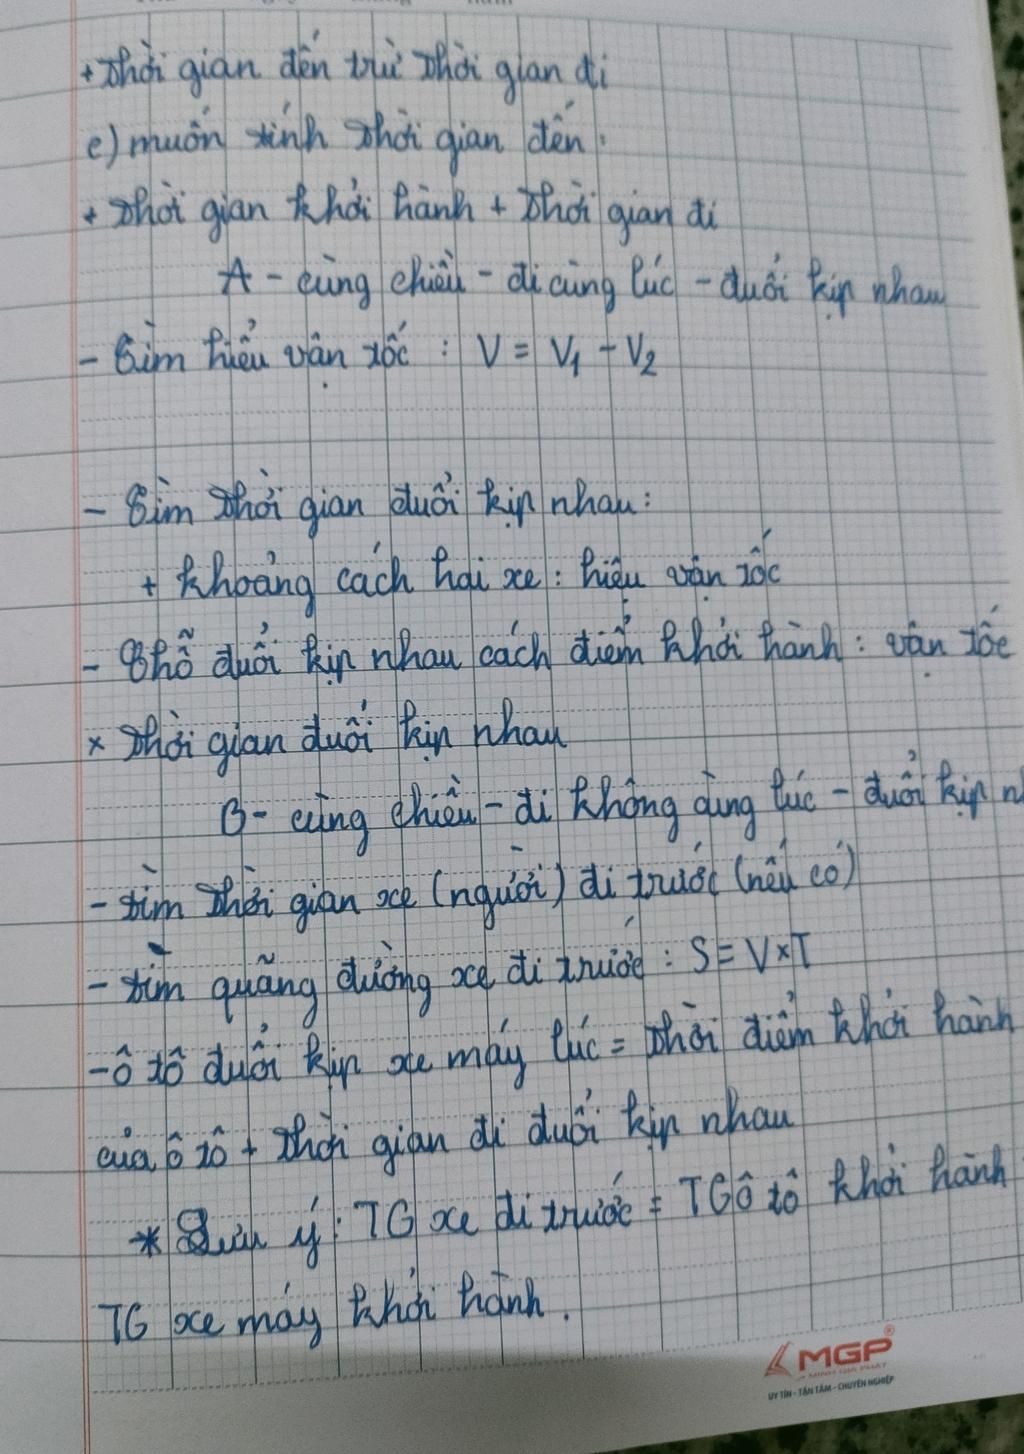 + Thời gian đến trừ thời gian đi
e) muốn tính thời gian đến:
+ Thời gian khởi hành + thời gian đi
A - cùng chiều - đi cùng lúc - đuổi kịp nhau
- Tìm hiểu vận tốc : V = V1 - V2
- Tìm thời gian đuổi kịp nhau:
+ khoảng cách hai xe : hiệu vận tốc
- Chỗ đuổi kịp nhau cách điểm khởi hành : vận tốc
x thời gian đuổi kịp nhau
B - cùng chiều - đi không cùng lúc - đuổi kịp
- tìm thời gian xe (người) đi trước (nếu có)
- tìm quãng đường xe đi trước : S = V x T
- ô tô đuổi kịp xe máy lúc = thời điểm khởi hành
của ô tô + thời gian đi đuổi kịp nhau
* Lưu ý : TG xe đi trước = TG ô tô khởi hành
TG xe máy khởi hành.
MGP
MINH GIA PHÁT
UY TÍN - TẬN TÂM - CHUYÊN NGHIỆP